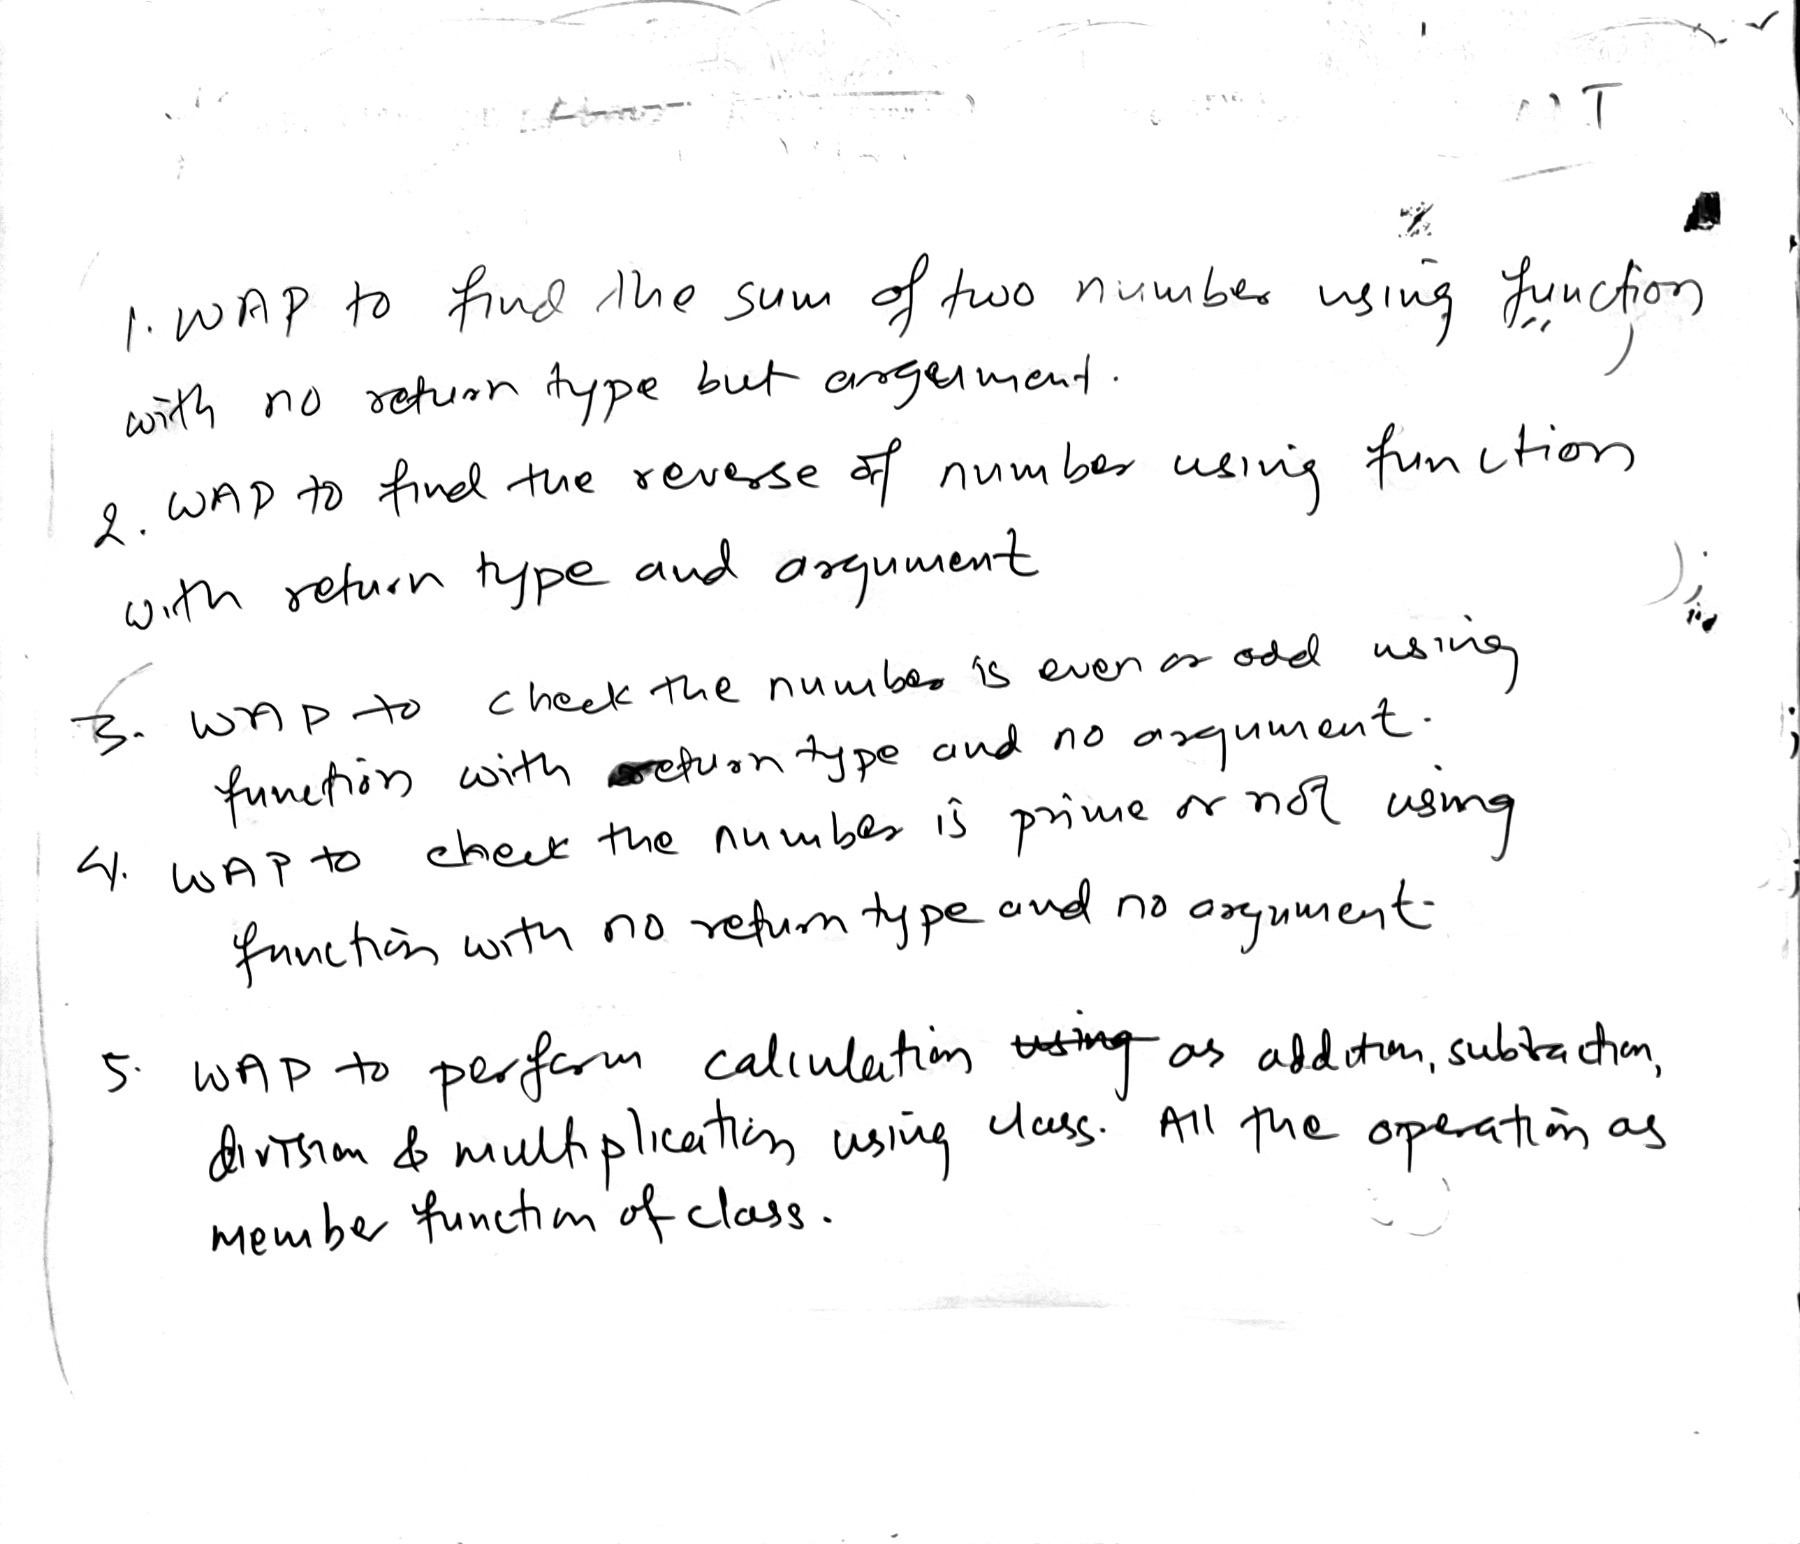 1. WAP to find the sum of two number using function
with no return type but argerment.
2. WAP to find the reverse of number using function
with return type and argument
3. WAP to check the number is even or odd using
function with return type and no argument.
4. WAP to check the number is prime or not using
function with no return type and no argument.
5. WAP to perform calculation using as addition, subtraction,
division & multiplication using class. All the operation as
member function of class.